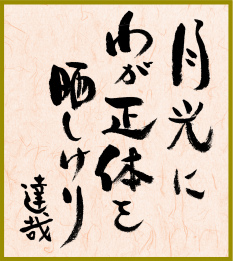 月光に
わが正体を
晒しけり
達哉